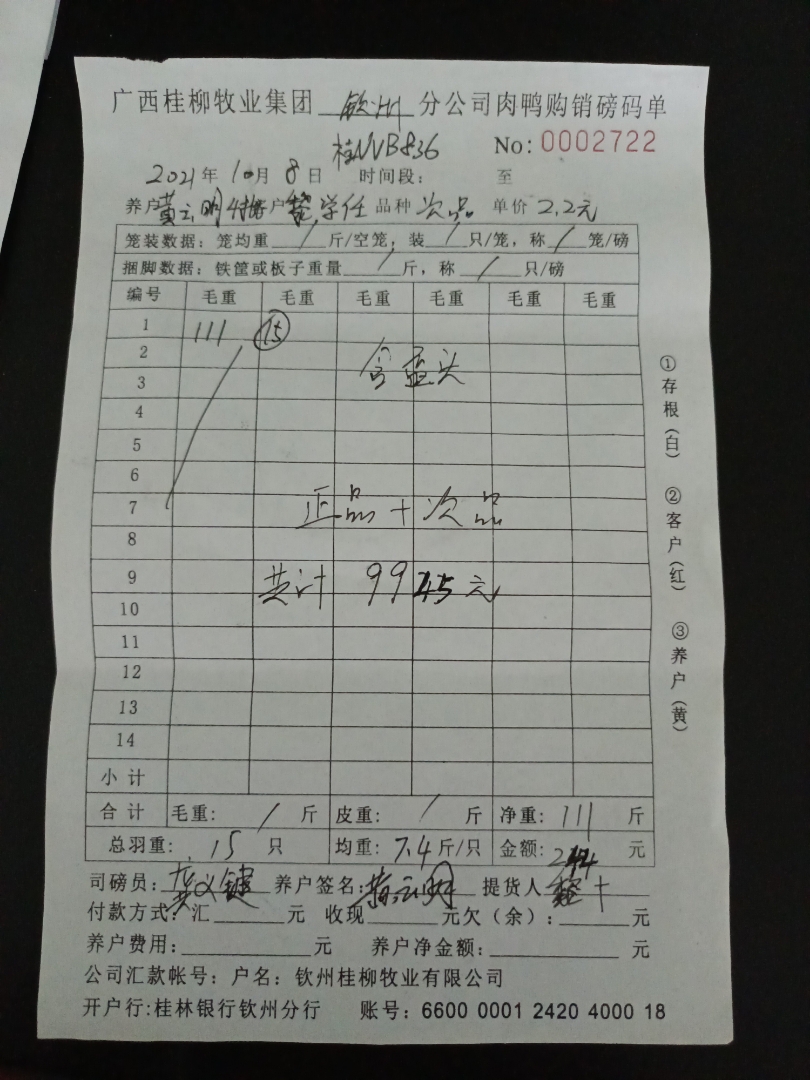 广西桂柳牧业集团 钦州 分公司肉鸭购销磅码单
桂NVB836 No: 0002722
2021年10月8日 时间段： 至
养户 黄云明 户 学任 品种 次品 单价 2.2元
笼装数据：笼均重 / 斤/空笼；装 / 只/笼，称 / 笼/磅
捆脚数据：铁筐或板子重量 / 斤，称 / 只/磅
编号 毛重 毛重 毛重 毛重 毛重 毛重
1 111 15
2 含 头
3
4
5
6
7 正品+次品
8
9 共计 9945元
10
11
12
13
14
小计
合计 毛重： / 斤 皮重： / 斤 净重：111 斤
总羽重：15 只 均重：7.4斤/只 金额：244 元
司磅员：黄义键 养户签名：黄云明 提货人
付款方式：汇 元 收现 元欠（余）： 元
养户费用： 元 养户净金额： 元
公司汇款帐号：户名：钦州桂柳牧业有限公司
开户行:桂林银行钦州分行 账号：6600 0001 2420 4000 18
①存根（白） ②客户（红） ③养户（黄）